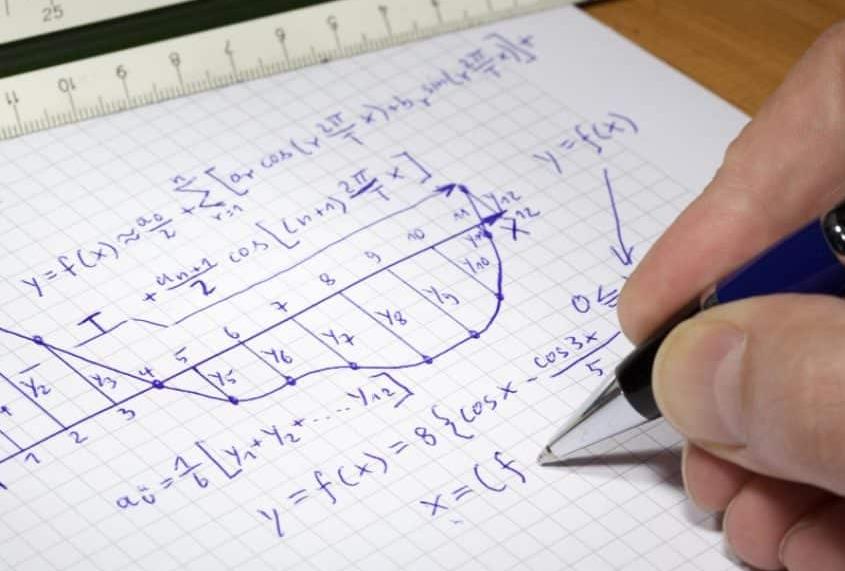 25
11 10 9 8 7 6 5 4
y=f(x)≈a₀/2+∑ⁿᵣ₌₁[aᵣ cos(r 2π/T x)+bᵣ sin(r 2π/T x)]+
+aₙ₊₁/2 cos[(n+1) 2π/T x]
y=f(x)
T
1 2 3 4 5 6 7 8 9 10 11 12
y₂ y₃ y₅ y₆ y₇ y₈ y₉ y₁₀ y₁₁ y₁₂
X
0≤
a₀=1/6[y₁+y₂+....y₁₂]
y=f(x)=8{cosx-cos3x/5
x=(f